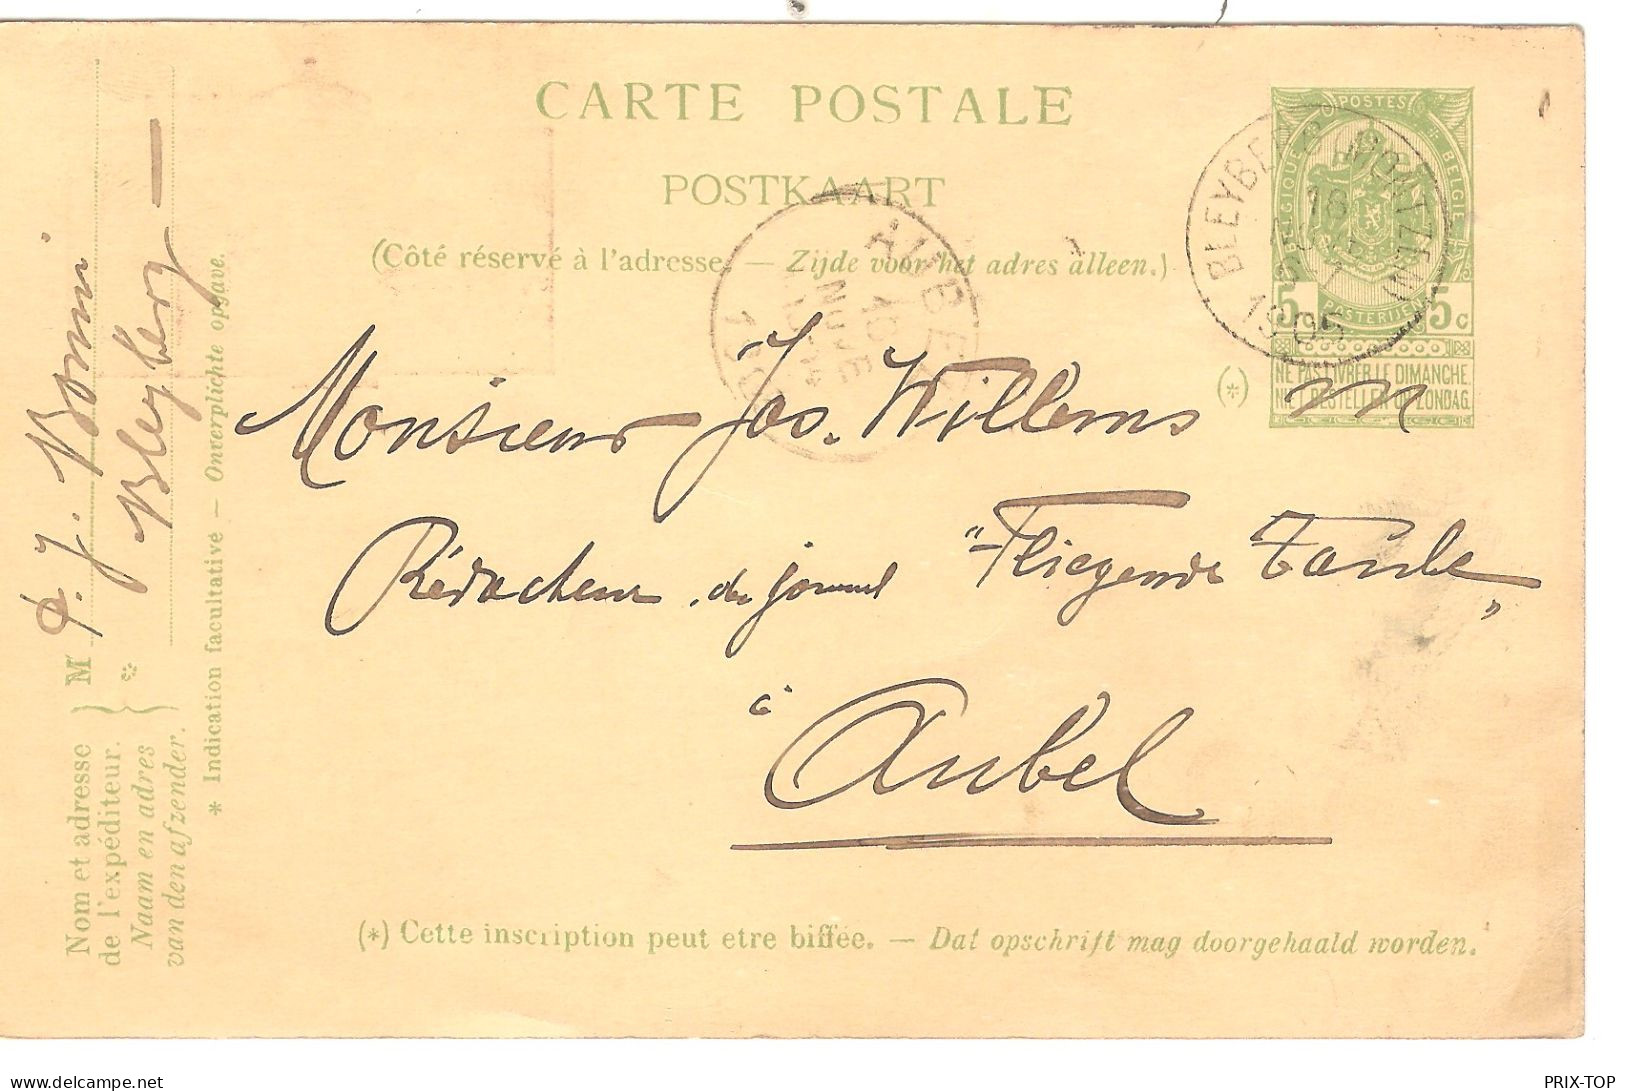 CARTE POSTALE
POSTKAART
(Côté réservé à l'adresse. — Zijde voor het adres alleen.)
POSTES
BELGIQUE BELGIË
POSTERIJEN
5c 5c
NE PAS LIVRER LE DIMANCHE.
NIET BESTELLEN OP ZONDAG.
(*)
BLEYBERG MONTZEN
16
1905
AUBEL
Monsieur Jos. Willems
Rédacteur du journal "Fliegende Taube"
à
Aubel
(*) Cette inscription peut etre biffée. — Dat opschrift mag doorgehaald worden.
Nom et adresse
de l'expéditeur.
Naam en adres
van den afzender.
M
*
J. Bonni
Bleyberg
* Indication facultative — Onverplichte opgave.
delcampe.net
PRIX-TOP